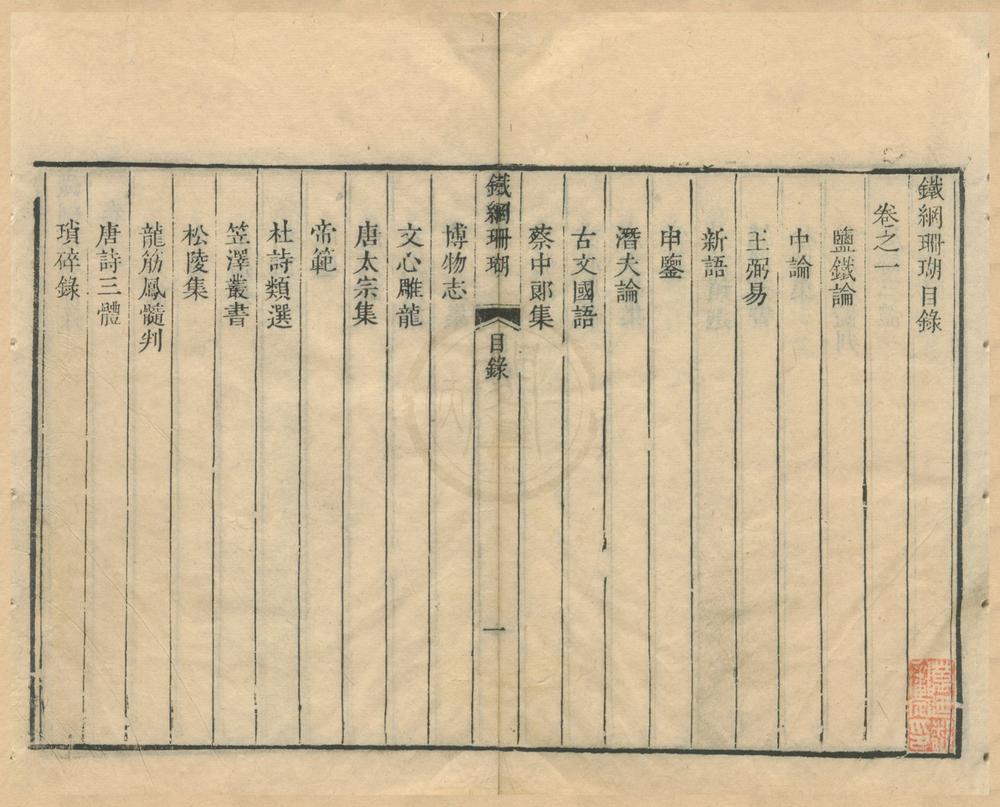 鐵網珊瑚目錄
卷之一
鹽鐵論
中論
王弼易
新語
申鑒
潛夫論
古文國語
蔡中郎集
鐵網珊瑚 目錄 一
博物志
文心雕龍
唐太宗集
帝範
杜詩類選
笠澤叢書
松陵集
龍筋鳳髓判
唐詩三體
瑣碎錄